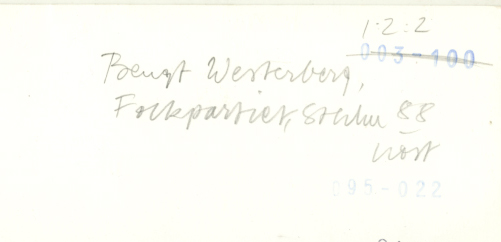 1-2:2
003-100
Bengt Westerberg,
Folkpartiet, Sthlm 88
höst
095-022